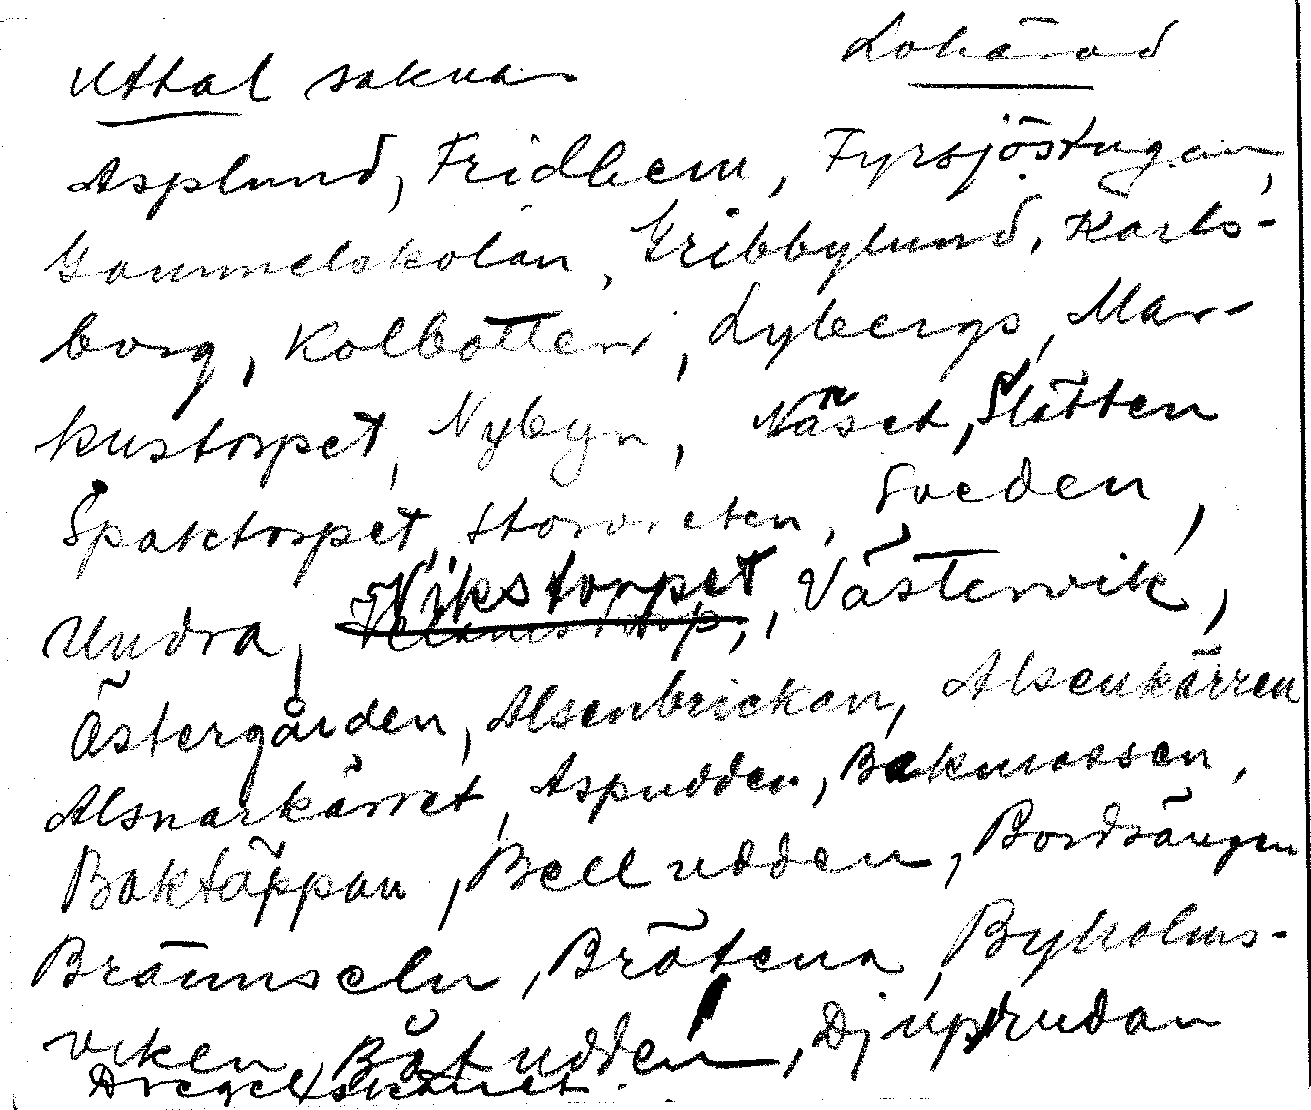 Lohärad
Uttal saknas
Asplund, Fridhem, Fyrsjöstugan,
Gammelskolan, Gribbylund, Karls-
borg, Kolbotten, Lybergs, Mar-
kustorpet, Nybyn, Näset, Slätten
Spaktorpet, Storvreten, Sveden,
Undra, Vikstorpet, Västervik,
Östergården, Alsenbrickan, Alsenkärren
Alsnarkärret, Aspudden, Bakmossen,
Baktäppan, Belludden, Bordsängen
Brännseln, Bråtena, Byholms-
viken, Båtudden, Djuprudan